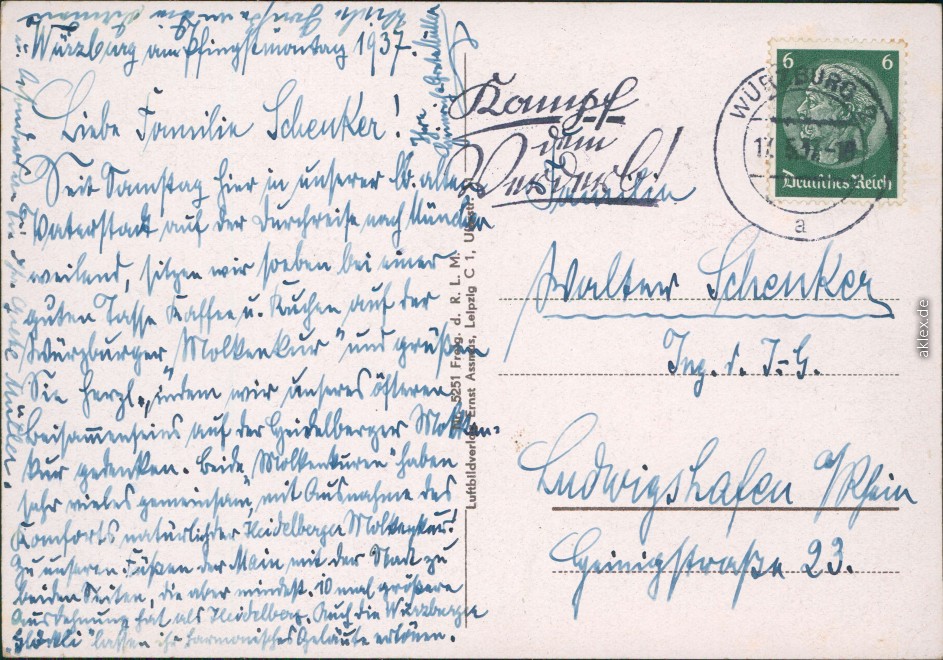 Würzburg am Pfingstmontag 1937.
Liebe Familie Schenker!
Seit Samstag hier in unserer lb. alten
Vaterstadt auf der Durchreise nach München
weilend, sitzen wir soeben bei einer
guten Tasse Kaffee u. Kuchen auf der
"Würzburger Molkenkur" und grüßen
Sie herzl., indem wir unseres öfteren
Beisammenseins auf der Heidelberger Molken-
kur gedenken. Beide "Molkenkuren" haben
sehr vieles gemeinsam, mit Ausnahme des
Komforts natürlich der Heidelberger Molkenkur!
Zu unseren Füßen der Main mit der Stadt zu
beiden Seiten, die aber mindest. 10 mal größere
Ausdehnung hat als Heidelberg. Auch die Würzburger
"Glöckli" lassen ihr harmonisches Geläute ertönen.
Ihre
Grete Müller
Nr. 5251 Freig. d. R. L. M.
Luftbildverlag Ernst Assmus, Leipzig C 1, Ulrichstr.
Kampf
dem
Verderb!
WÜRZBURG 2
a
6 6
Deutsches Reich
Familie
Walter Schenker
Ing. d. I.-G.
Ludwigshafen a/Rhein
Heinigstraße 23.
aklex.de